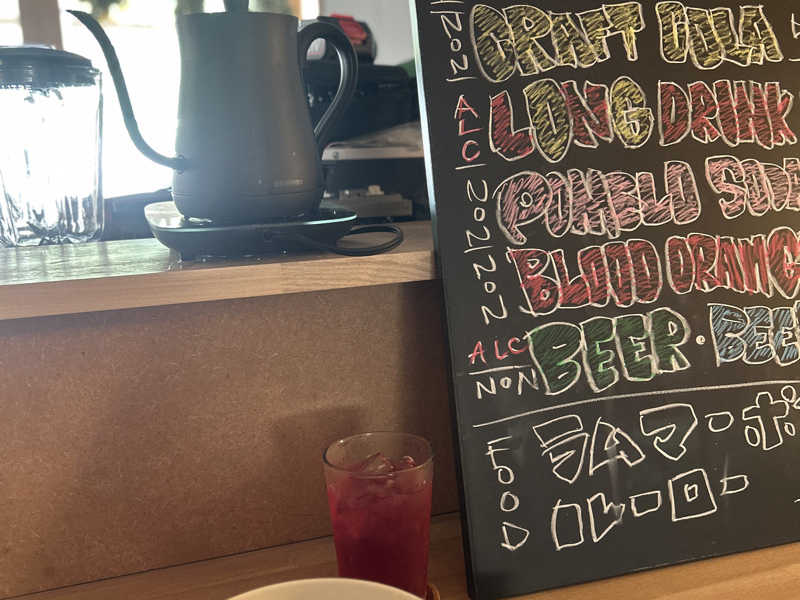 NON CRAFT COLA
ALC LONG DRINK
NON POMELO SODA
NON BLOOD ORANG
ALC NON BEER・BEE
FOOD ラムマーボ
ルーロー